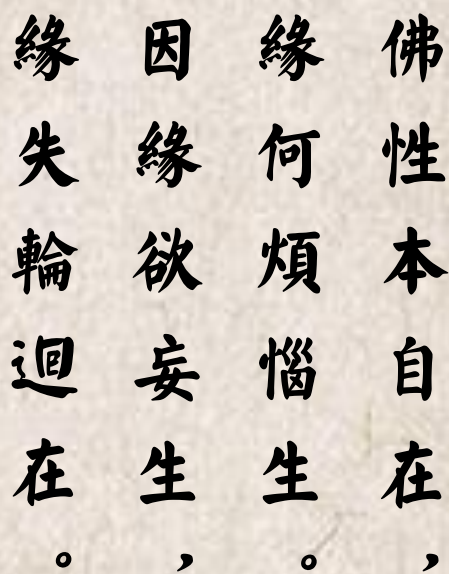 佛性本自在，
緣何煩惱生。
因緣欲妄生，
緣失輪迴在。